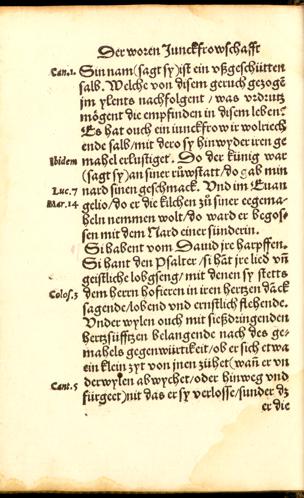 Der woren Junckfrowschafft
Can.1. Sin nam (sagt sy) ist ein vßgeschütten
salb. Welche von disem geruch gezogẽ
jm ylents nachfolgent / was vrdrutz
mögent die empfinden in disem leben?
Es hat ouch ein iunckfrow ir wolriech
ende salb / mit dero sy hinwyder iren ge
Ibidem mahel erlustiget. Do der künig war
(sagt sy) an siner rüwstatt / do gab min
Luc.7 nard sinen geschmack. Vnd im Euan
Mar.14 gelio / do er die kilchen zů siner eegema-
heln nemmen wolt / do ward er begos-
sen mit dem Nard einer sünderin.
Si habent vom Dauid jre harpffen.
Si hant den Psalter / si hãt jre lied vñ
geistliche lobgseng / mit denen sy stetts
Colos.3 dem herrn hofieren in iren hertzen dãck
sagende / lobend vnd ernstlich flehende.
Vnder wylen ouch mit sießdringenden
hertzsüfftzen belangende nach des ge-
mahels gegenwürtikeit / ob er sich etwa
ein klein zyt von jnen zühet (wañ er vn
Cant.5 derwylen abwychet / oder hinweg vnd
fürgeet) nit das er sy verlosse / sunder dz
er die